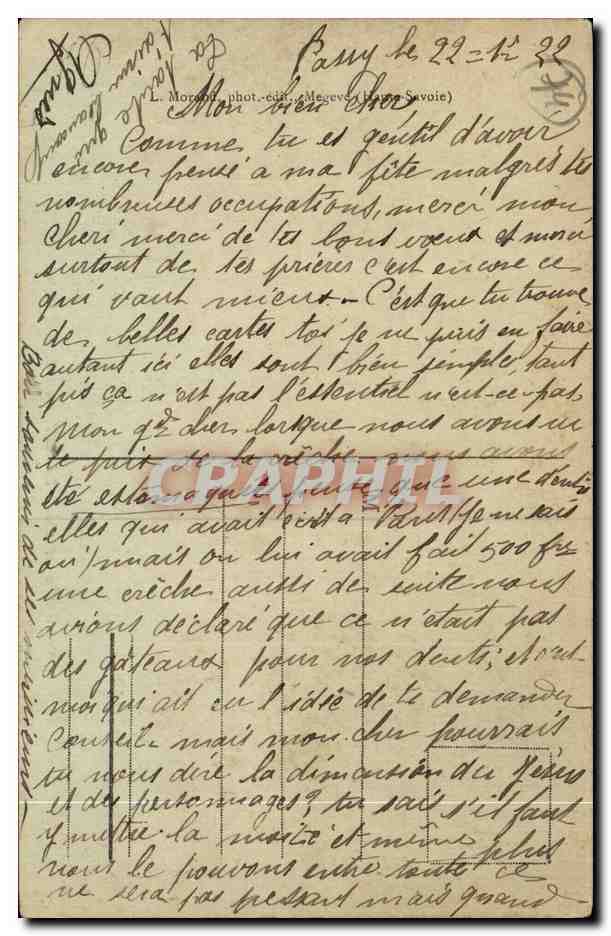 Passy le 22-12 22
46
L. Morand, phot.-edit., Megève (Haute-Savoie)
Mon bien Cher
Comme tu es gentil d'avoir
encore pensé a ma fête malgrés tes
nombreuses occupations, merci mon
Cheri merci de tes bons vœux et merci
surtout de tes prières c'est encore ce
qui vaut mieux. C'est que tu trouve
de belles cartes toi je ne puis en faire
autant ici elles sont bien simple, tant
pis ça n'est pas l'essentiel n'est-ce-pas.
Mon qd cher lorsque nous avons vu
le prix de la crèche nous avons
été estomaquée parce que une d'entre
elles qui avait écrit a Paris (je ne sais
ou) mais on lui avait fait 500 frs
une crèche aussi de suite nous
avions déclaré que ce n'était pas
des gâteaux pour nos dents; et c'est
moi qui ait eu l'idée de te demander
Conseil. mais mon cher pourrais
tu nous dire la dimension du Jésus
et des personnages? tu sais s'il faut
y mettre la moitié et même plus
nous le pouvons entre toute ce
ne sera pas pessant mais quand
Bon souvenir de
La tante qui
t'aime beaucoup
Agnès
CPAPHIL